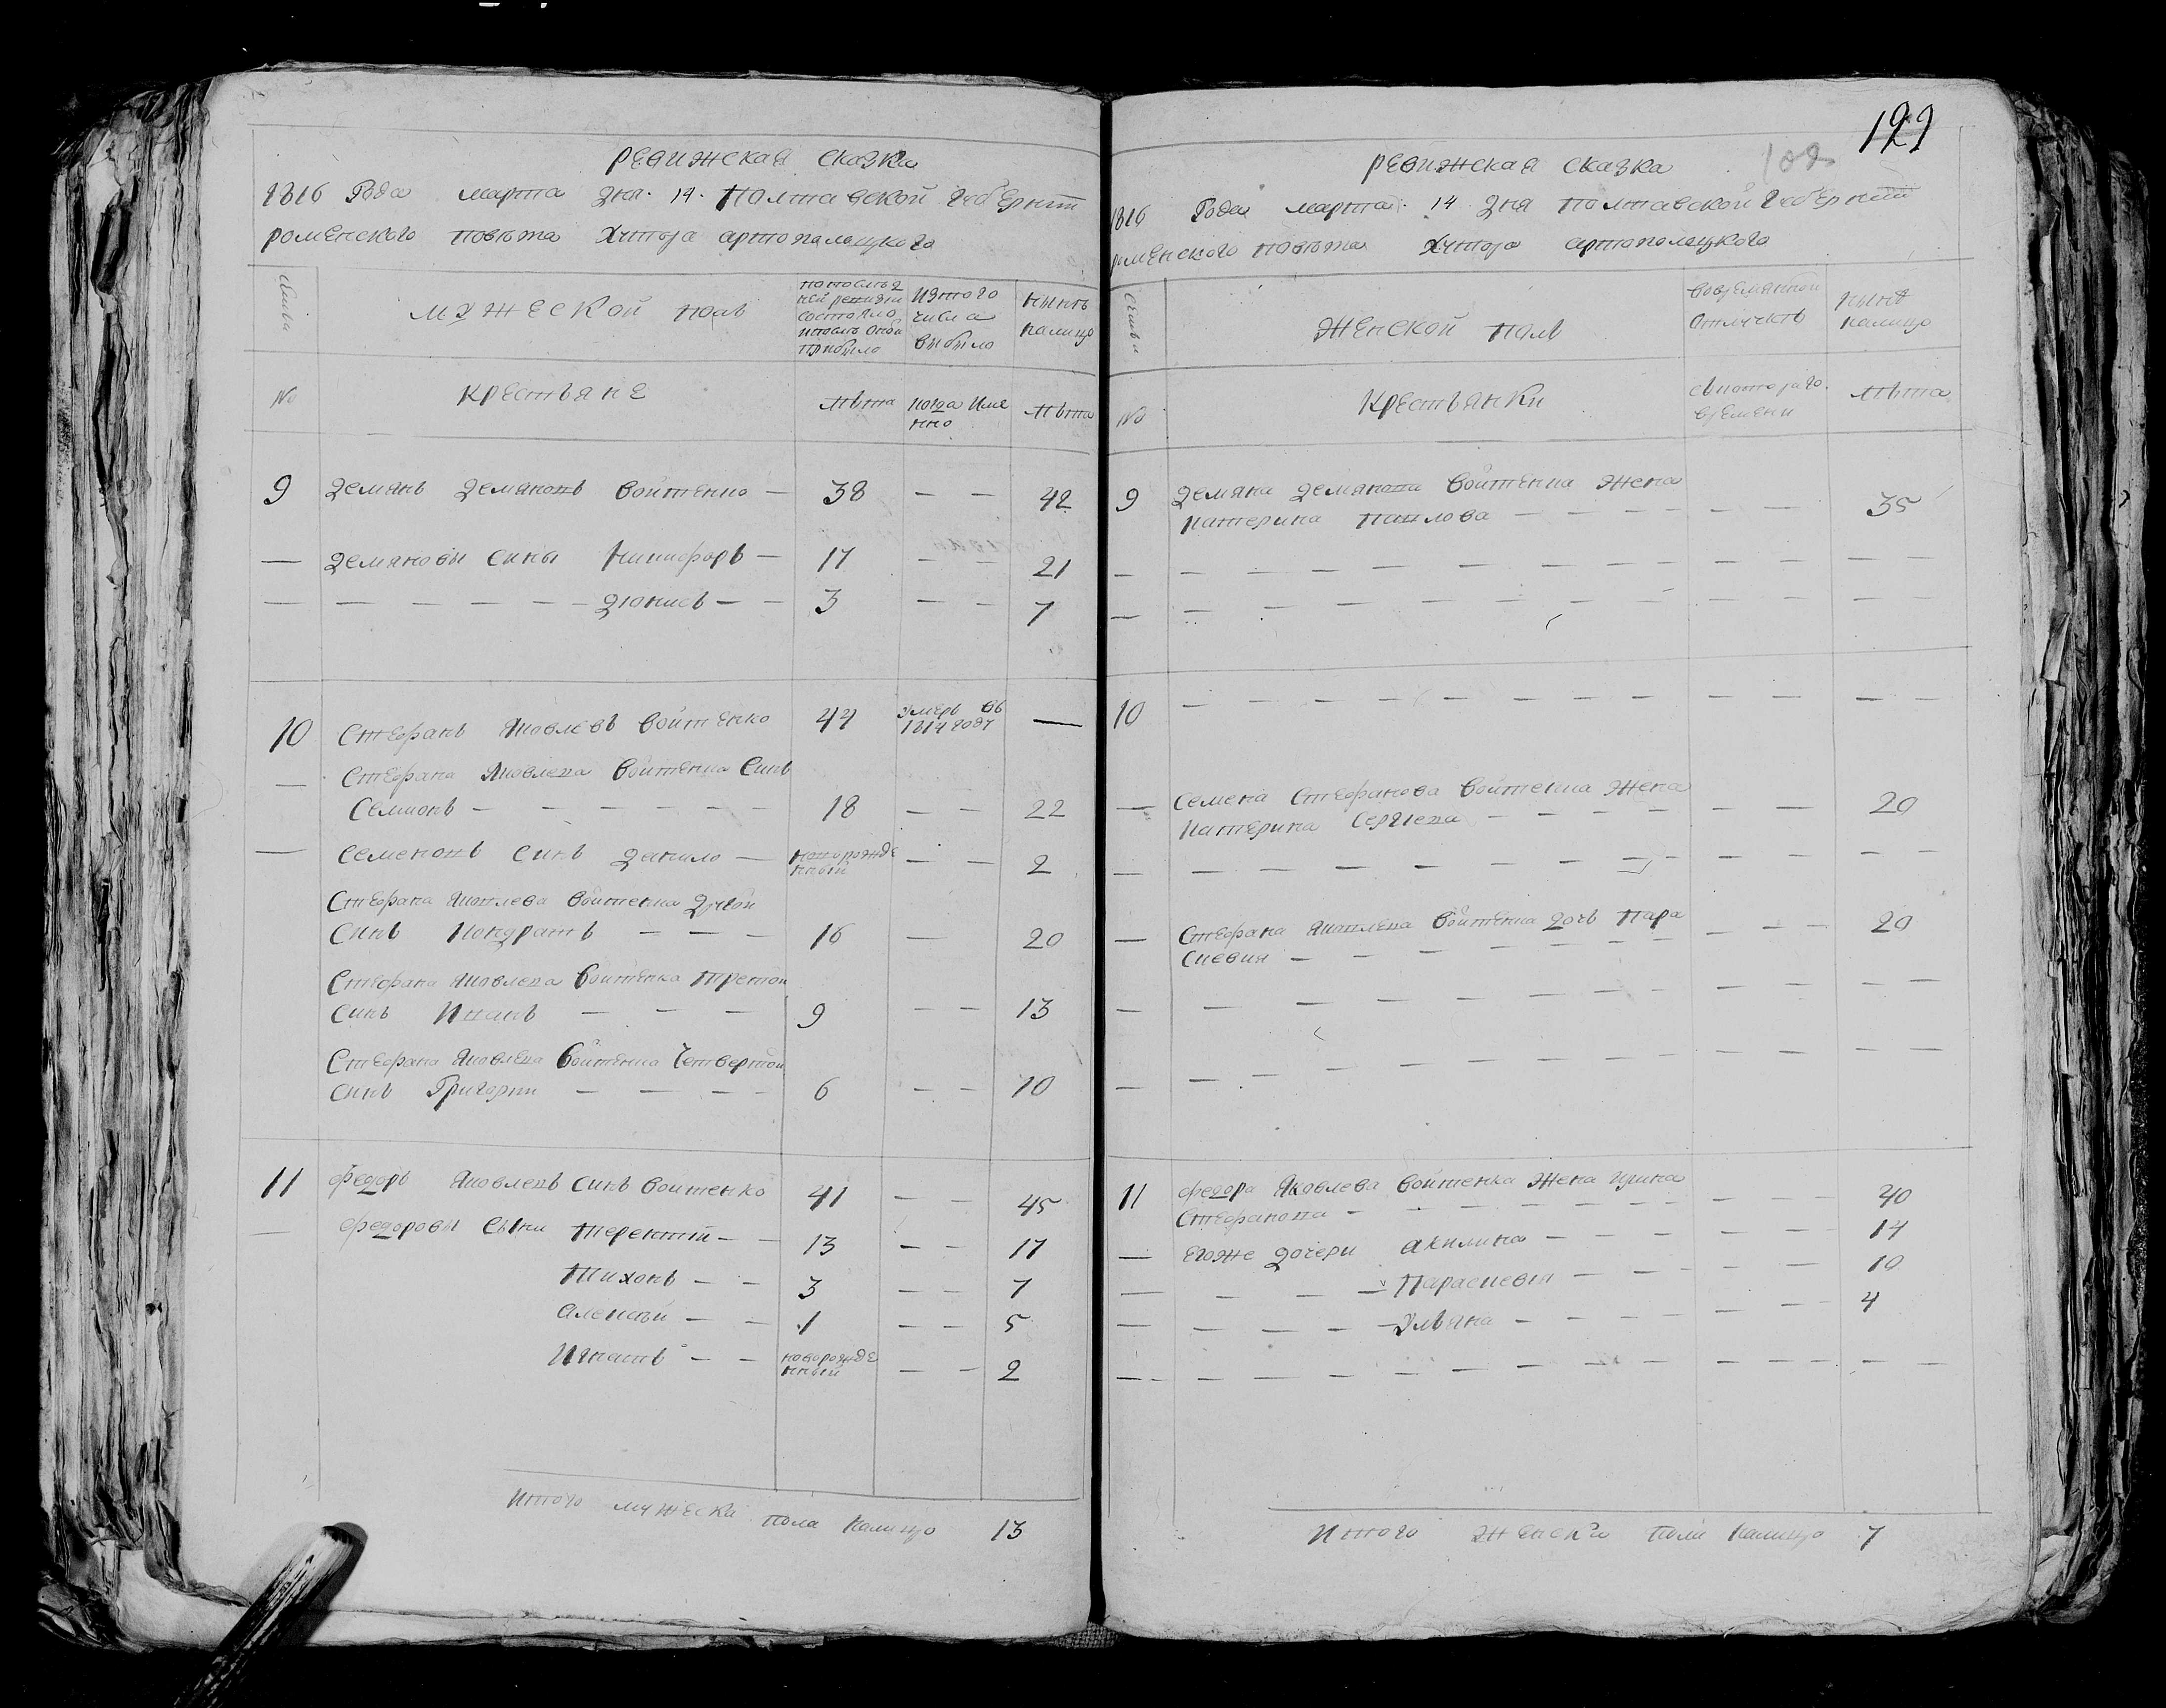 ревижская сказка
1816 Года марта дня 14 Полтавской Губернии
роменского повѣта Хутора артополоцкого
Семьи
мужеской полъ
по послѣд
ней ревизии
состояло
и послѣ оной
прибыло
изтого
числа
выбыло
нынѣ
налицо
№
крестьяне
лѣта
когда име
нно
лѣта
9 Демянъ Демяновъ Войтенко — 38 — — 42
— Демяновы сины Никифоръ — 17 — — 21
— — — — — — Дюнисъ — — 3 — — 7
10 Стефанъ Яковлевъ Войтенко 44 умеръ въ —
1814 годѵ
— Стефана Яковлева Войтенка Синъ
Семионъ — — — — — — — 18 — — 22
— Семеновъ синъ Данило — новорожде — — 2
нный
Стефана Яковлева Войтенка другой
Синъ Кондратъ — — — 16 — 20
Стефана Яковлева Войтенка третои
синъ Иванъ — — — 9 — — 13
Стефана Яковлева Войтенка Четвертои
синъ Григории — — — — 6 — — 10
11 Федоръ Яковлевъ Синъ Войтенко 41 — — 45
— Федоровы Сыны Терентий — — 13 — — 17
Тихонъ — — 3 — — 7
Алексѣй — — 1 — — 5
Игнатъ — — новорожде — — 2
нный
Итого мужеска пола налицо 13
129
ревижская сказка
1816 Года марта 14 Дня Полтавской Губернии
роменского повѣта Хутора артополоцкого
Семьи
женской полъ
вовременной
отлучкѣ
нынѣ
налицо
№
крестьянки
съкоторого
времени
лѣта
9 Демяна Демянова Войтенка жена
Катерина Павлова — — — — — — 35
— — — — — — — — — — — — —
— — — — — — — — — — — — —
10 — — — — — — — — — — — —
— Семена Стефанова Войтенка жена
Катерина Сергиева — — — — — — 20
— — — — — — — — — — — — —
— Стефана Яковлева Войтенка дочь Пара — — — 20
скевия — — — — — — —
— — — — — — — — — — — — —
— — — — — — — — — — — — —
11 Федора Яковлева Войтенка жена Ирина
Стефанова — — — — — — — — — — 40
— Егоже дочери Акилина — — — — — — 14
— — — — — Параскевия — — — — — 10
— — — — — Ульяна — — — — — 4
— — — — — — — — — — — — — — —
Итого женска пола налицо 7